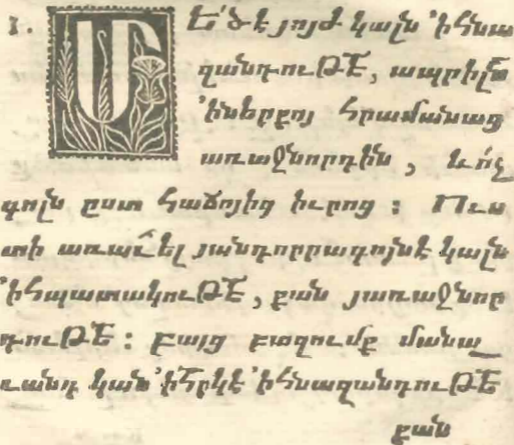 1. ՄԵ՛ծ է յոյժ կալն ՚ի հնա
զանդութե՟, ապրիլն
՚ի ներքոյ հրամանաց
առաջնորդին, և ոչ
գոլն ըստ հաճոյից իւրոց : Ուս
տի առաւել յանդորրագոյնէ կալն
՚ի հպատակութե՟, քան յառաջնոր
դութե՟ : Բայց բազումք մանա_
ւանդ կան ՚ի հրկէ ՚ի հնազանդութե՟
քան